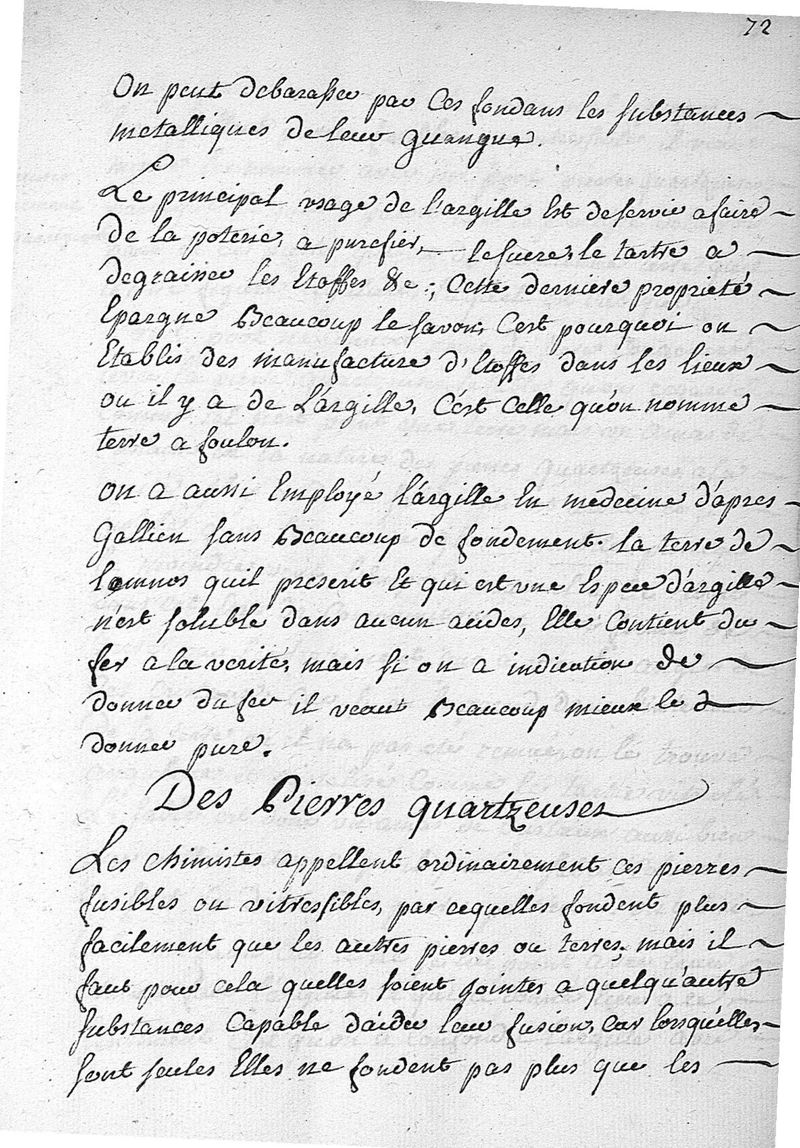 72
On peut debarasser par Ces fondans les substances
metalliques de leur guangue.
Le principal usage de l'argille Est de servir a faire
de la poterie, a purefier, le sucre, le tartre a
degraisser les Etoffes &c; Cette derniere propriété
Epargne Beaucoup le savon, C'est pourquoi on
Etablis des manufacture d'Etoffes dans les lieux
ou il y a de L'argille, C'est Celle qu'on nomme
terre a foulon.
on a aussi Employé l'argille En medecine d'apres
Gallien sans Beaucoup de fondement. la terre de
lemnos quil prescrit Et qui est une Espece d'argille
n'est soluble dans aucun acides, Elle Contient du
fer a la verité, mais si on a indication de
donner du fer il veaut Beaucoup mieux le
donner pure.
Des Pierres quartzeuses
Les chimistes appellent ordinairement ces pierres
fusibles ou vitresfibles, par cequelles fondent plus
facilement que les autres pierres ou terres, mais il
faut pour cela quelles soient jointes a quelqu'autre
substances Capable d'aider leur fusion, Car lorsqu'elles
sont seules Elles ne fondent pas plus que les